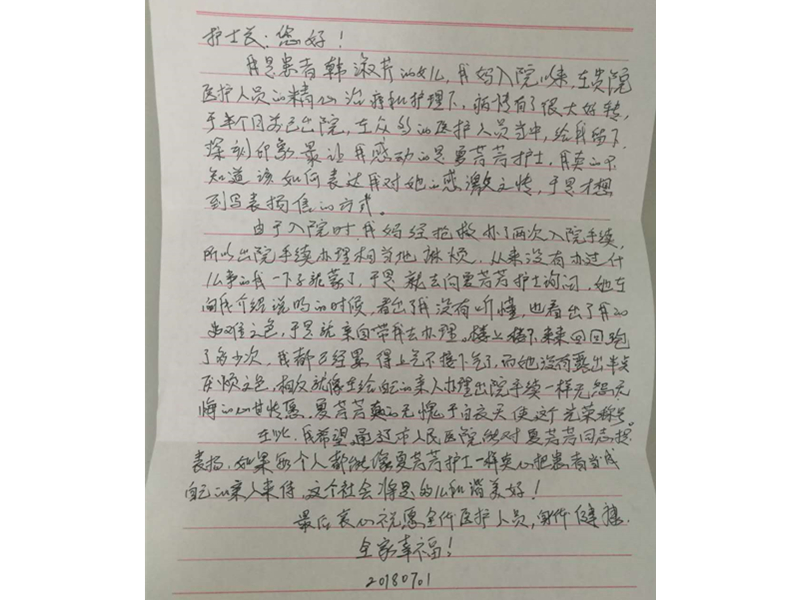 护士长：您好！
我是患者韩淑芹的女儿，我妈入院以来，在贵院
医护人员的精心治疗和护理下，病情有了很大好转，
于半个月前已出院，在众多的医护人员当中，给我留下
深刻印象最让我感动的是夏芳芳护士，我真的不
知道该如何表达我对她的感激之情，于是才想
到写表扬信的方式。
由于入院时我妈经抢救办了两次入院手续，
所以出院手续办理相当地麻烦，从来没有办过什
么事的我一下子就蒙了，于是就去向夏芳芳护士询问，她在
向我介绍说明的时候，看出了我没有听懂，也看出了我的
为难之色，于是就亲自带我去办理。楼上楼下来来回回跑
了多少次，我都已经累得上气不接下气了，而她没有露出半点
厌烦之色，相反就像在给自己的亲人办理出院手续一样无怨无
悔的心甘情愿。夏芳芳真的无愧于白衣天使这个光荣称号。
在此，我希望通过市人民医院能对夏芳芳同志提
表扬，如果每个人都能像夏芳芳护士一样真心把患者当成
自己的亲人来待，这个社会将是多么和谐美好！
最后衷心祝愿全体医护人员，身体健康，
全家幸福！
20180701